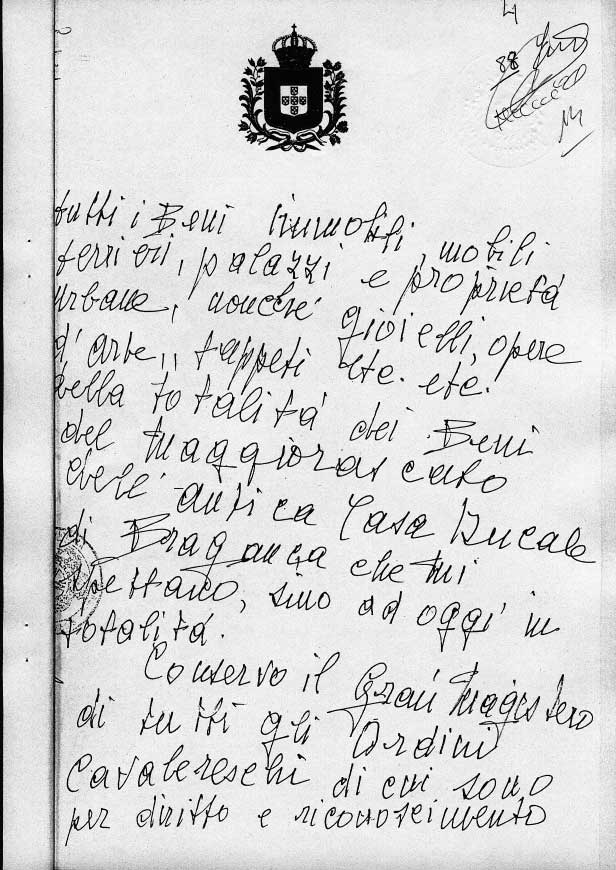 4
88
tutti i Beni Immobili, mobili
terrieri, palazzi e proprietá
urbane, nonché gioielli, opere
d'arte,, tappeti etc. etc.
della totalitá dei Beni
del Maggiorascato
dell' antica Casa Ducale
di Bragança che mi
spettano, sino ad oggi in
totalitá.
Conservo il Gran Magistero
di tutti gli Ordini
Cavalereschi di cui sono
per diritto e riconoscimento